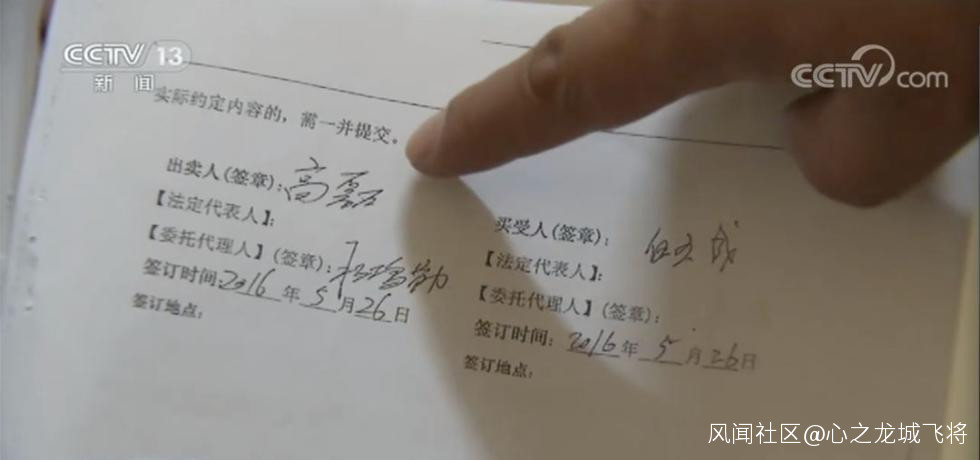 CCTV 13
新闻
CCTV.com
实际约定内容的，需一并提交。
出卖人(签章)：高磊
【法定代表人】：
【委托代理人】(签章)：
签订时间：2016年5月26日
签订地点：
买受人(签章)：
【法定代表人】：
【委托代理人】(签章)：
签订时间：2016年5月26日
签订地点：
风闻社区@心之龙城飞将